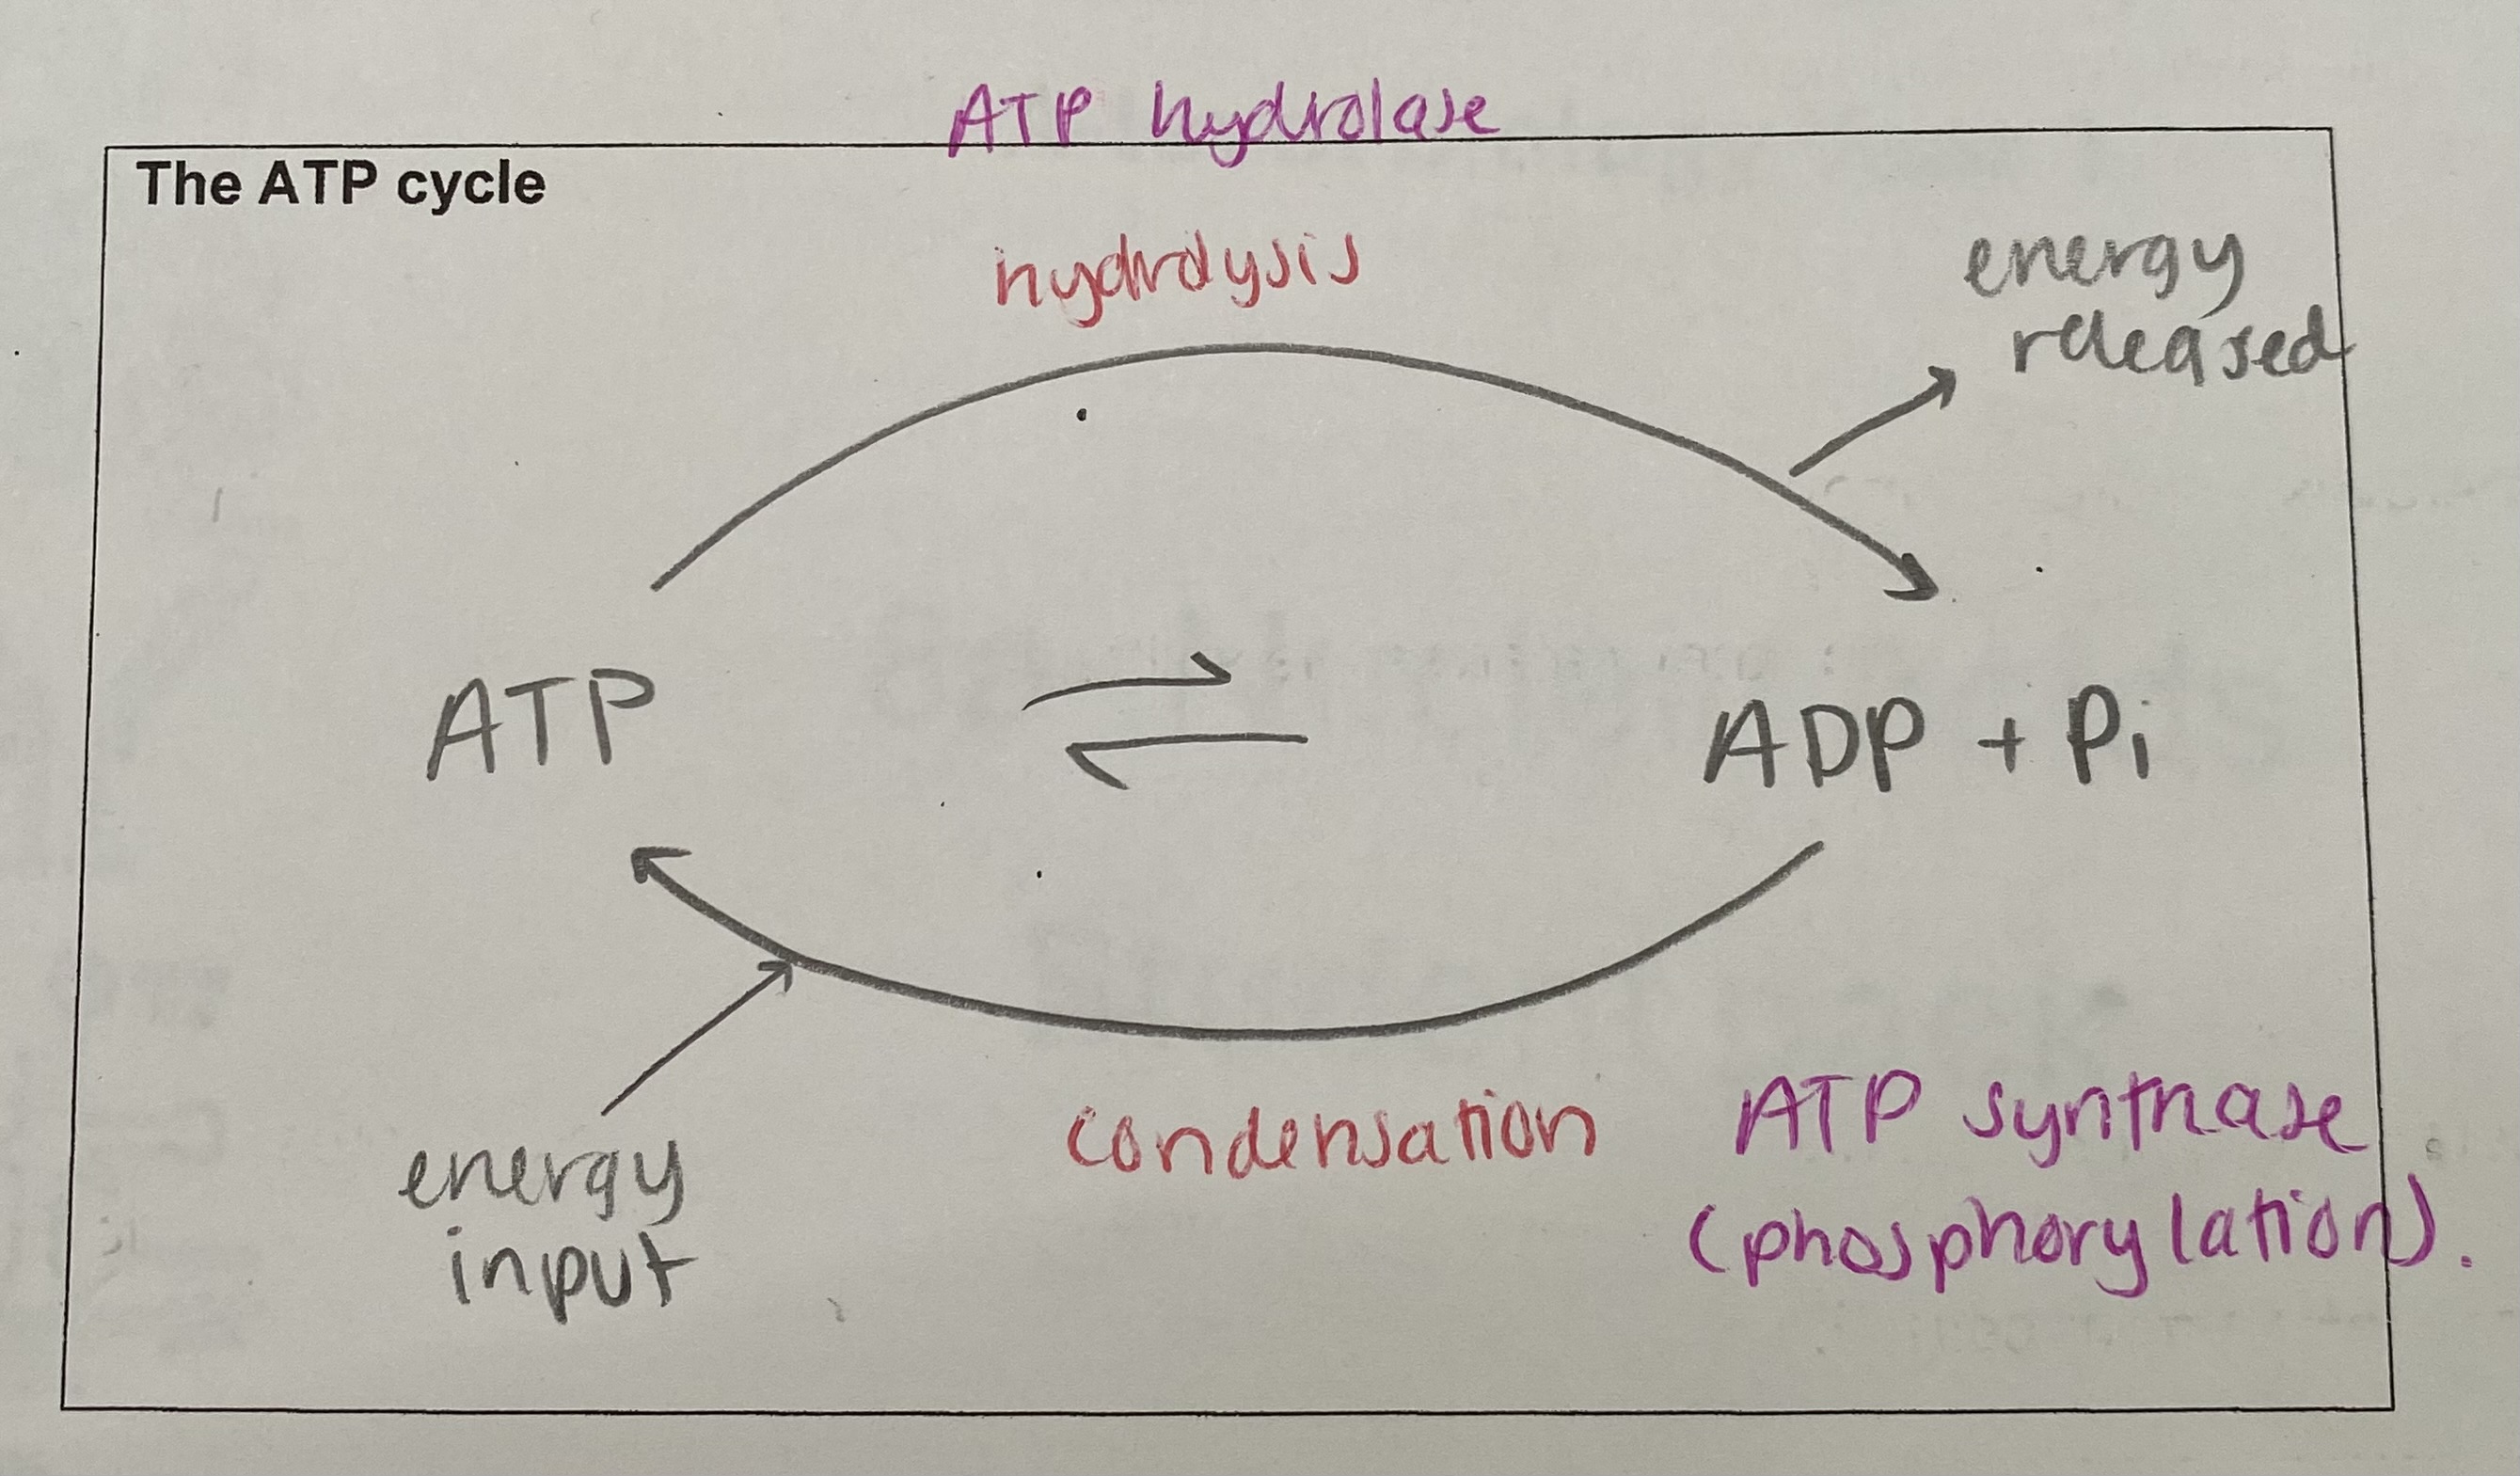 ATP hydrolase
The ATP cycle
hydrolysis
energy
released
ATP
ADP + Pi
condensation
ATP synthase
(phosphorylation).
energy
input